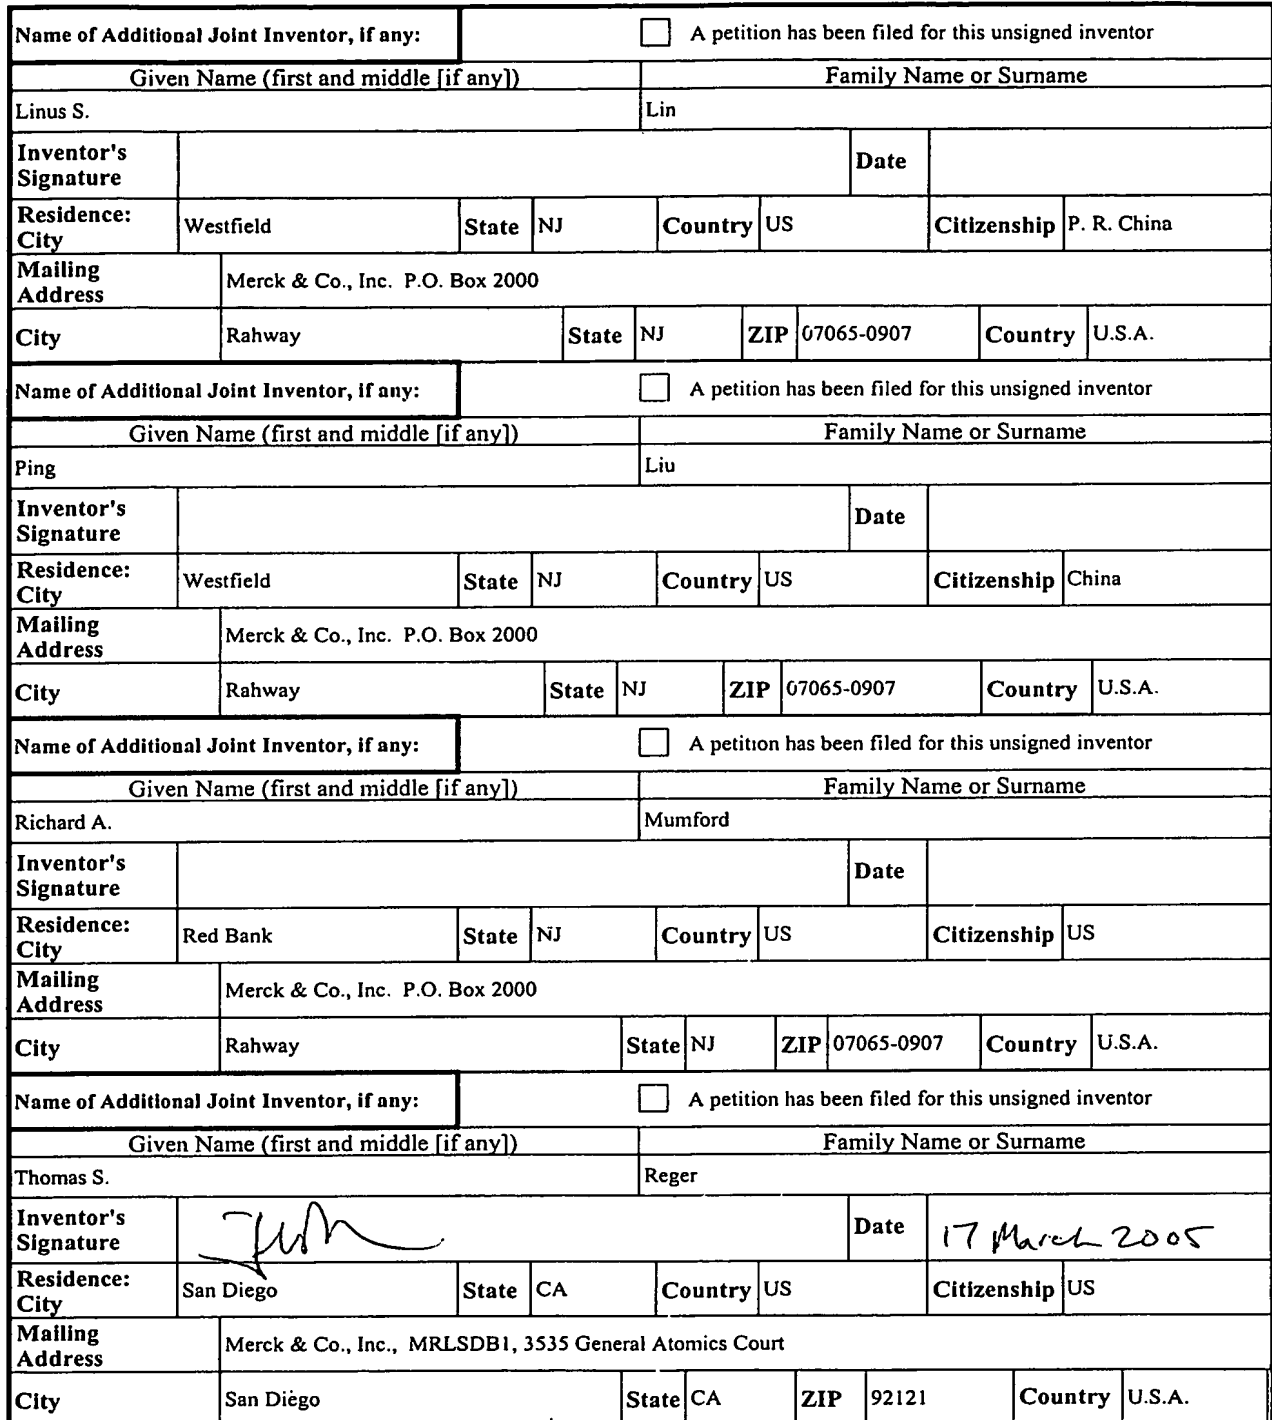 Name of Additional Joint Inventor, if any: A petition has been filed for this unsigned inventor
Given Name (first and middle [if any]) Family Name or Surname
Linus S. Lin
Inventor's Signature Date
Residence: City Westfield State NJ Country US Citizenship P. R. China
Mailing Address Merck & Co., Inc. P.O. Box 2000
City Rahway State NJ ZIP 07065-0907 Country U.S.A.
Name of Additional Joint Inventor, if any: A petition has been filed for this unsigned inventor
Given Name (first and middle [if any]) Family Name or Surname
Ping Liu
Inventor's Signature Date
Residence: City Westfield State NJ Country US Citizenship China
Mailing Address Merck & Co., Inc. P.O. Box 2000
City Rahway State NJ ZIP 07065-0907 Country U.S.A.
Name of Additional Joint Inventor, if any: A petition has been filed for this unsigned inventor
Given Name (first and middle [if any]) Family Name or Surname
Richard A. Mumford
Inventor's Signature Date
Residence: City Red Bank State NJ Country US Citizenship US
Mailing Address Merck & Co., Inc. P.O. Box 2000
City Rahway State NJ ZIP 07065-0907 Country U.S.A.
Name of Additional Joint Inventor, if any: A petition has been filed for this unsigned inventor
Given Name (first and middle [if any]) Family Name or Surname
Thomas S. Reger
Inventor's Signature Date 17 March 2005
Residence: City San Diego State CA Country US Citizenship US
Mailing Address Merck & Co., Inc., MRLSDB1, 3535 General Atomics Court
City San Diego State CA ZIP 92121 Country U.S.A.